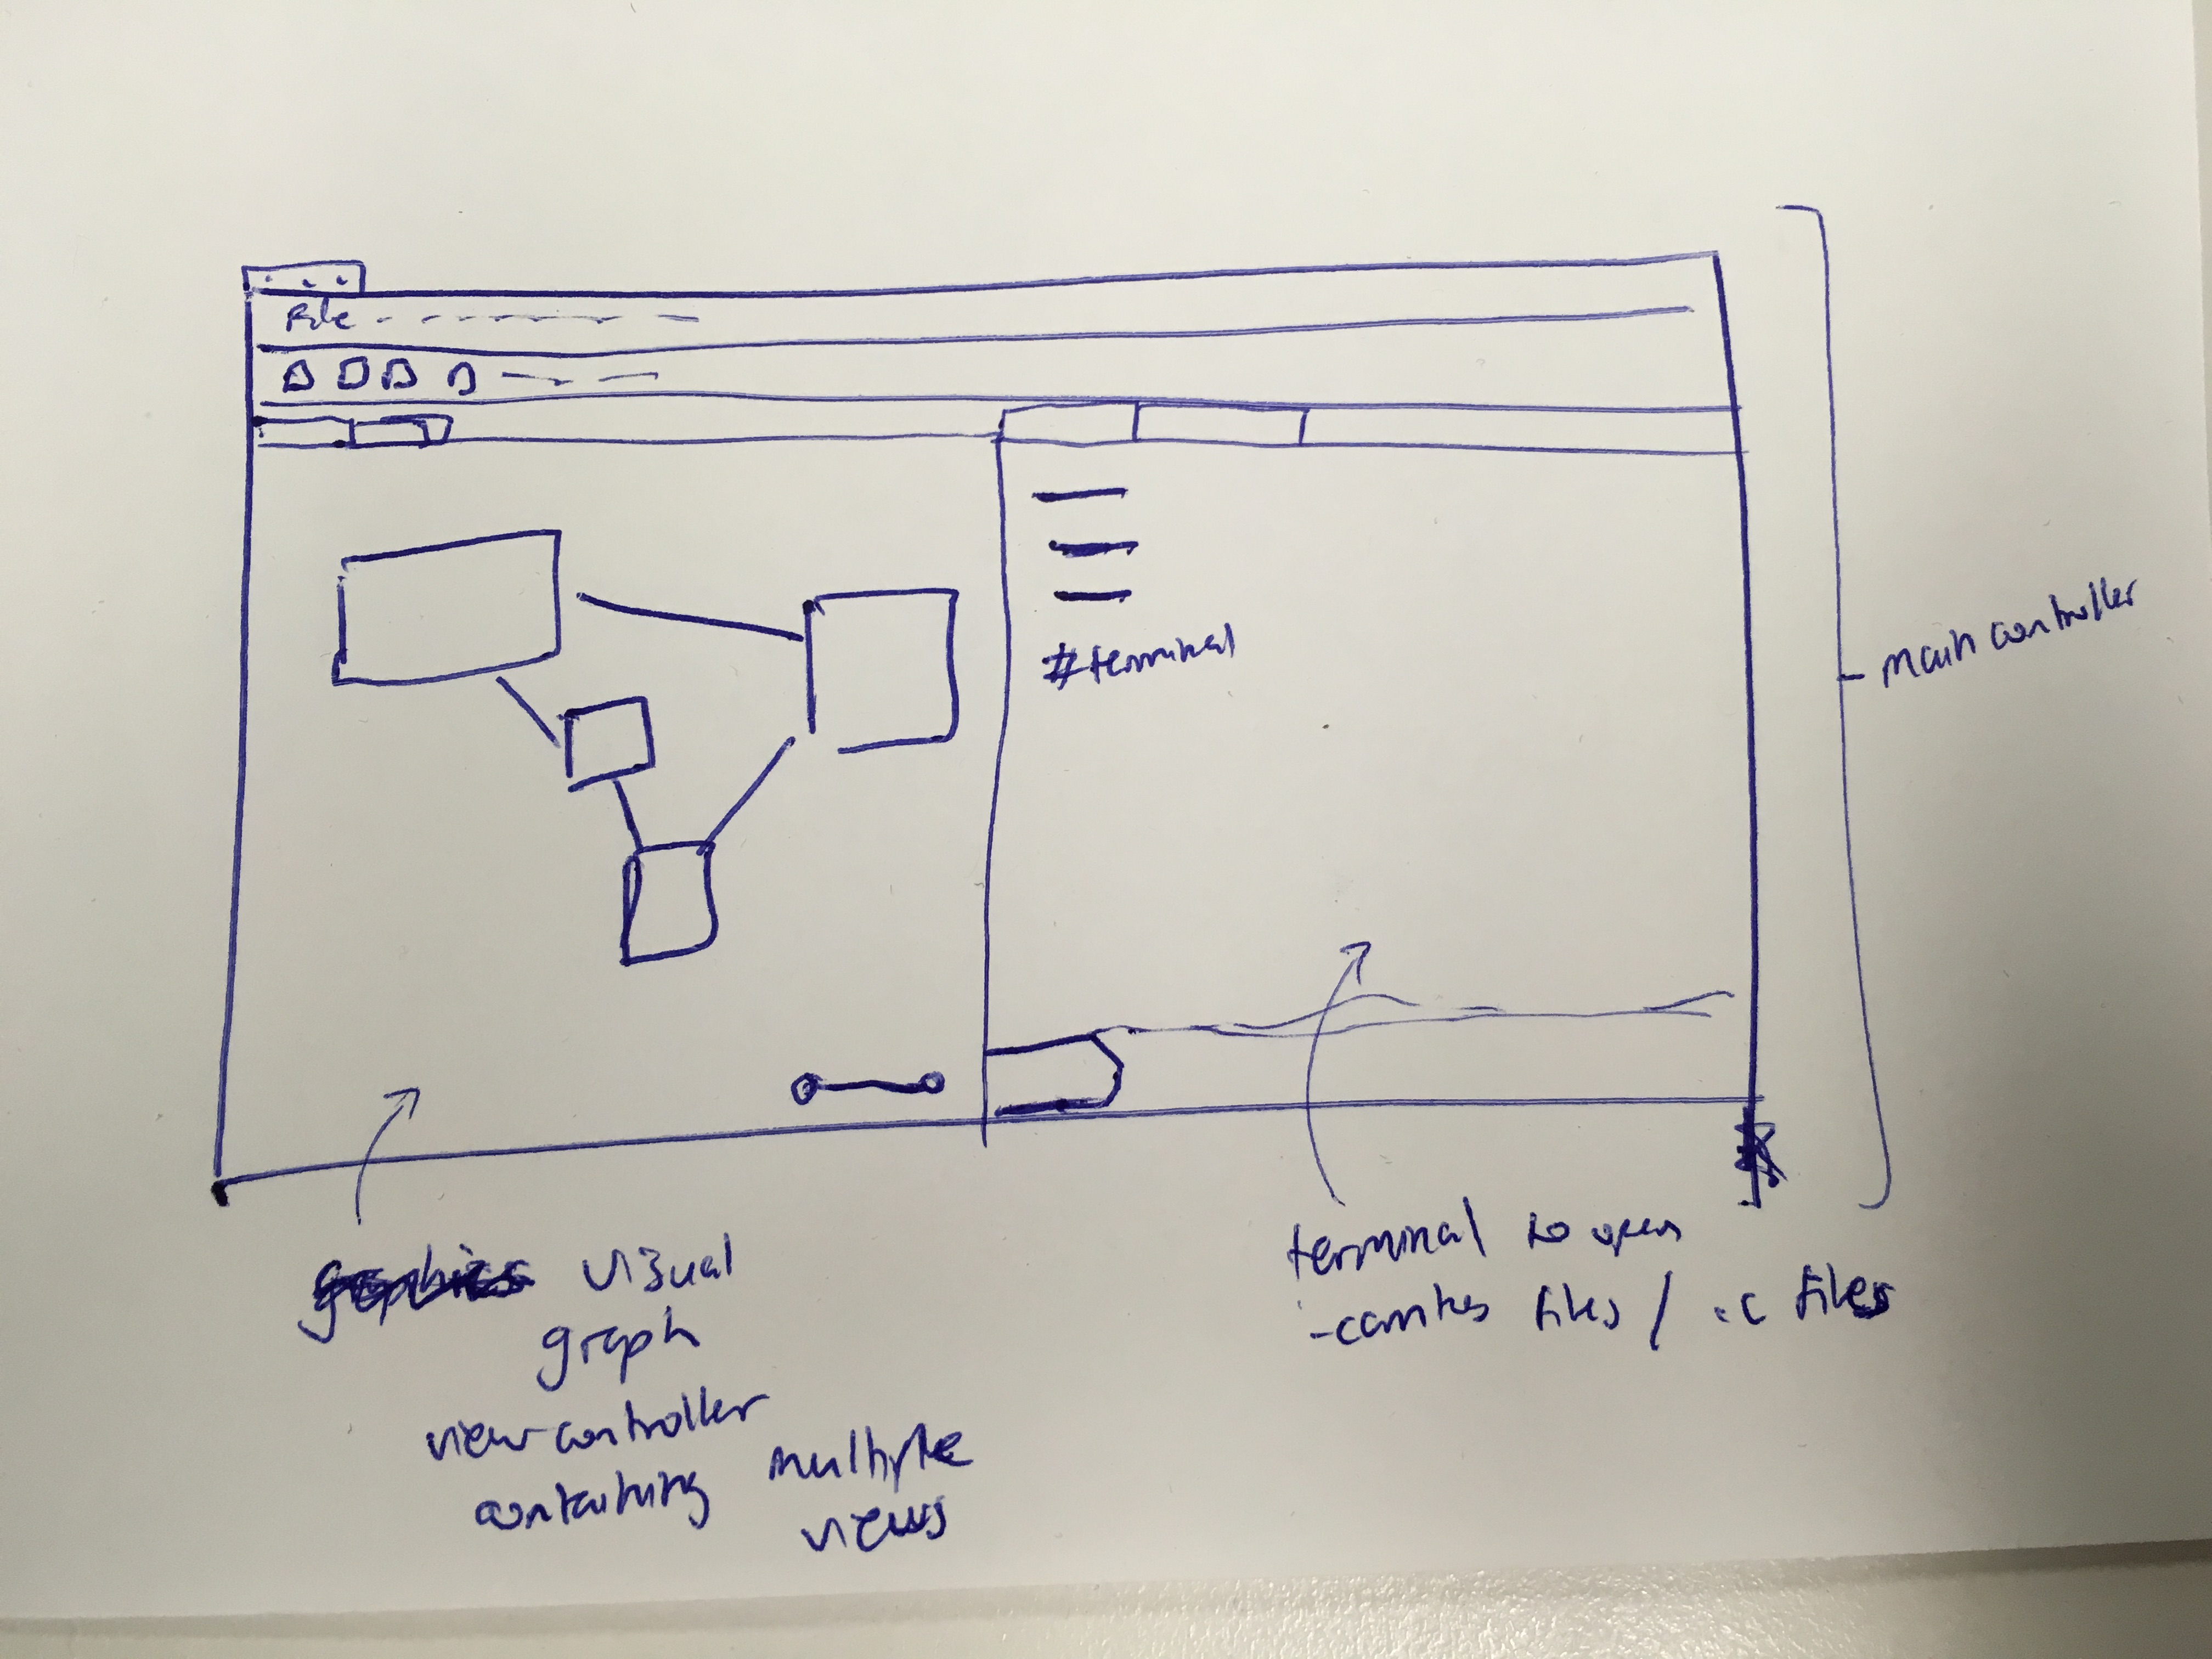 File
#terminal
main controller
visual
graph
view controller
containing multiple
views
terminal to open
files / .c files